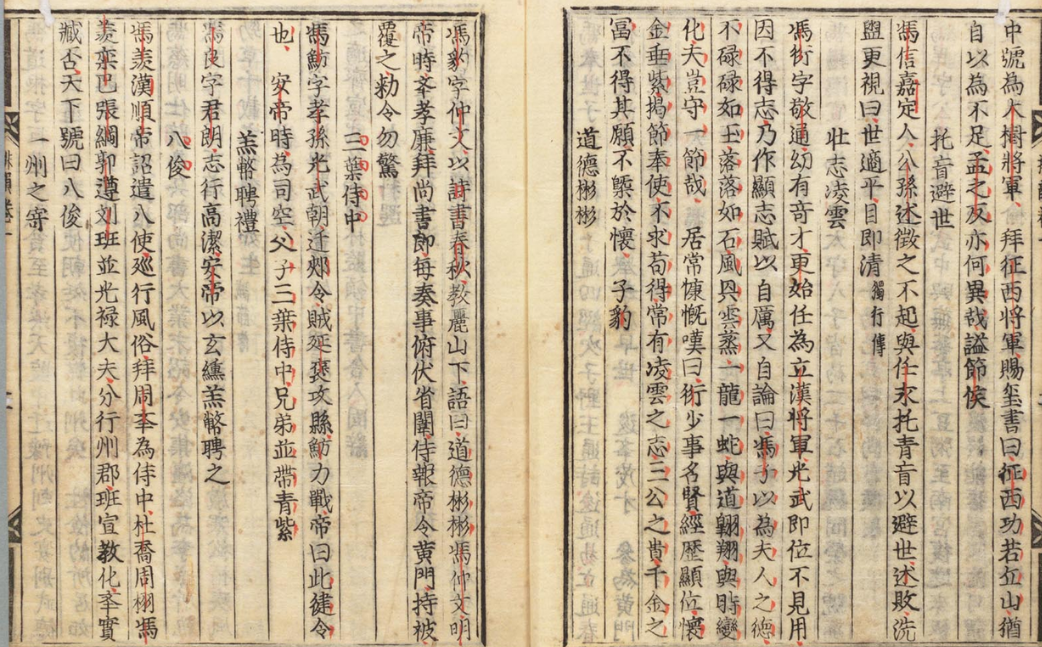 中號為大樹將軍拜征西將軍賜璽書曰征西功若丘山猶
自以為不足孟之反亦何異哉謚節侯
托盲避世
馮信嘉定人公孫述徵之不起與任永托青盲以避世述敗洗
盥更視曰世適平目即清獨行傳
壯志凌雲
馮衍字敬通幼有奇才更始任為立漢將軍光武即位不見用
因不得志乃作顯志賦以自厲又自論曰馮子以為夫人之德
不碌碌如玉落落如石風興雲蒸一龍一蛇與道翺翔與時變
化夫豈守一節哉居常慷慨嘆曰衍少事名賢經歷顯位懷
金垂紫揭節奉使不求苟得常有凌雲之志三公之貴千金之
冨不得其願不槩於懷子豹
道德彬彬
馮豹字仲文以詩書春秋教麗山下語曰道德彬彬馮仲文明
帝時孝廉拜尚書郎每奏事俯伏省闥侍報帝令黄門持被
覆之勑令勿驚
三葉侍中
馮魴字孝孫光武朝迁郟令賊延褒攻縣魴力戰帝曰此健令
也安帝時為司空父子三葉侍中兄弟並帶青紫
羔幣聘禮
馮良字君朗志行高潔安帝以玄纁羔幣聘之
八俊
馮羨漢順帝詔遣八使廵行風俗拜周㪯為侍中杜喬周栩馮
羨欒巴張綱郭遵刘班並光禄大夫分行州郡班宣教化㪯實
臧否天下號曰八俊
一州之寄